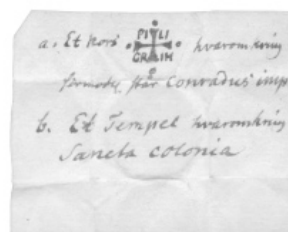 a. Et Kors PILI GRAIM hvaromkring
formodes står Conradus imp
b. Et Tempel hvaromkring
Sancta colonia